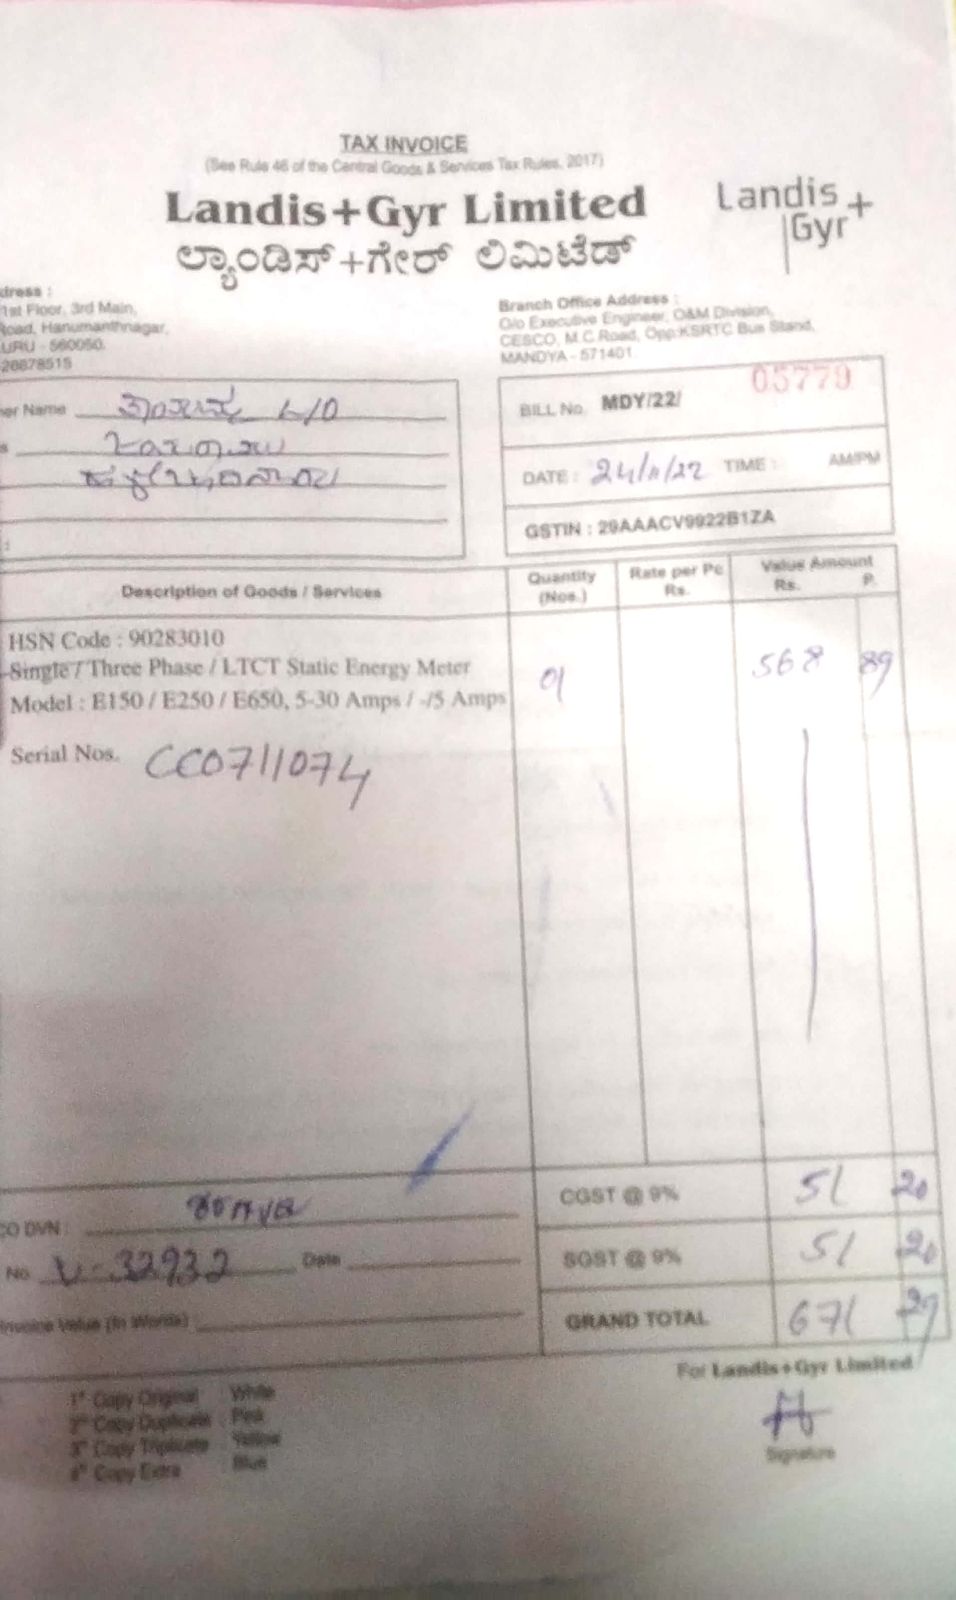 TAX INVOICE
(See Rule 46 of the Central Goods & Services Tax Rules, 2017)
Landis+Gyr Limited
ಲ್ಯಾಂಡಿಸ್+ಗೇರ್ ಲಿಮಿಟೆಡ್
Landis+
Gyr
dress :
1st Floor, 3rd Main,
Road, Hanumanthnagar,
URU - 560050.
26678515
Branch Office Address :
O/o Executive Engineer, O&M Division,
CESCO, M.C.Road, Opp:KSRTC Bus Stand,
MANDYA - 571401.
er Name
BILL No. MDY/22/ 05779
DATE : 24/11/22 TIME : AM/PM
GSTIN : 29AAACV9922B1ZA
Description of Goods / Services Quantity (Nos.) Rate per Pc Rs. Value Amount Rs. P.
HSN Code : 90283010
Single / Three Phase / LTCT Static Energy Meter 01 568 89
Model : E150 / E250 / E650, 5-30 Amps / -/5 Amps
Serial Nos. CC0711074
CGST @ 9% 51 20
CO DVN :
SGST @ 9% 51 20
No V-32932 Date
GRAND TOTAL 671 29
Invoice Value (In Words)
For Landis+Gyr Limited
1st Copy Original : White
2nd Copy Duplicate : Pink
3rd Copy Triplicate : Yellow
4th Copy Extra : Blue
Signature